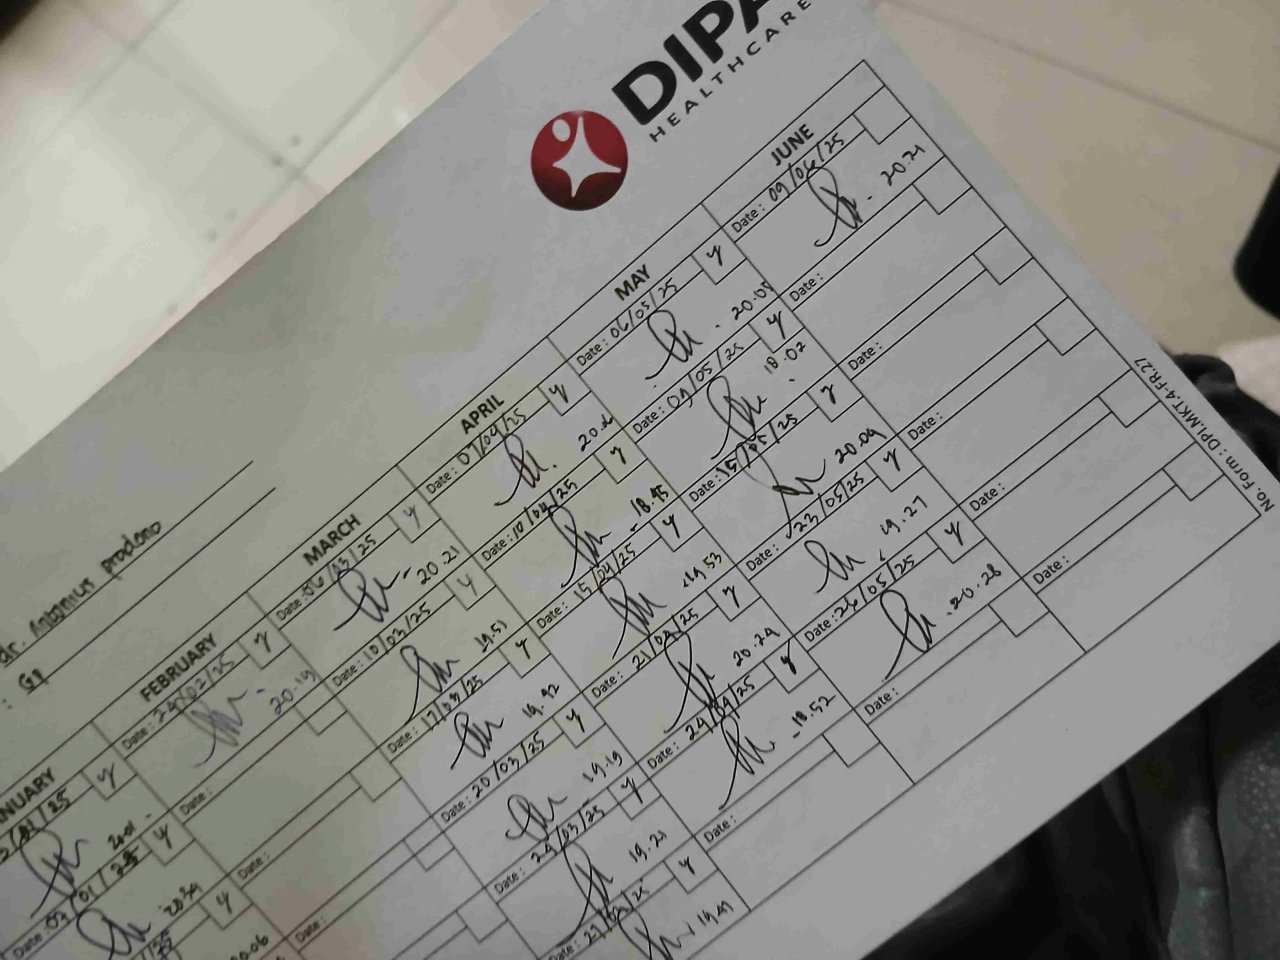 DIPA
HEALTHCARE
dr. Antonius
: GP
FEBRUARY
Date: 24/02/25 y
20.19
Date:
Date:
Date:
MARCH
Date: 06/03/25 y
20.21
Date: 10/03/25 y
19.51
Date: 17/03/25 y
19.42
Date: 20/03/25 y
19.19
Date: 24/03/25 y
19.21
Date: 27/03/25 y
APRIL
Date: 07/04/25 y
Date: 10/04/25 y
18.45
Date: 15/04/25 y
19.53
Date: 21/04/25 y
20.24
Date: 24/04/25 y
18.52
Date:
MAY
Date: 06/05/25 y
20.05
Date: 09/05/25 y
18.02
Date: 15/05/25 y
20.09
Date: 23/05/25 y
19.27
Date: 26/05/25 y
20.28
Date:
JUNE
Date: 09/06/25
20.21
Date:
Date:
Date:
Date:
Date:
No. Form : DPI.MKT.4-FR.27